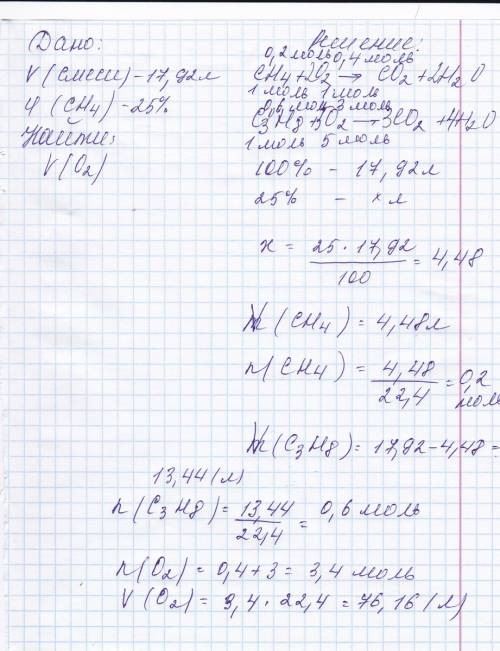 Дано:
Решение:
V (смеси) - 17,92 л
φ (CH4) - 25%
Найти:
V(O2)
0,2 моль 0,4 моль
CH4 + 2O2 → CO2 + 2H2O
1 моль 1 моль
0,6 моль 3 моль
C3H8 + 5O2 → 3CO2 + 4H2O
1 моль 5 моль
100% - 17,92 л
25% - x л
x = 25 · 17,92 / 100 = 4,48
V(CH4) = 4,48 л
n(CH4) = 4,48 / 22,4 = 0,2
моль
V(C3H8) = 17,92 - 4,48 =
13,44 (л)
n(C3H8) = 13,44 / 22,4 = 0,6 моль
n(O2) = 0,4 + 3 = 3,4 моль
V(O2) = 3,4 · 22,4 = 76,16 (л)